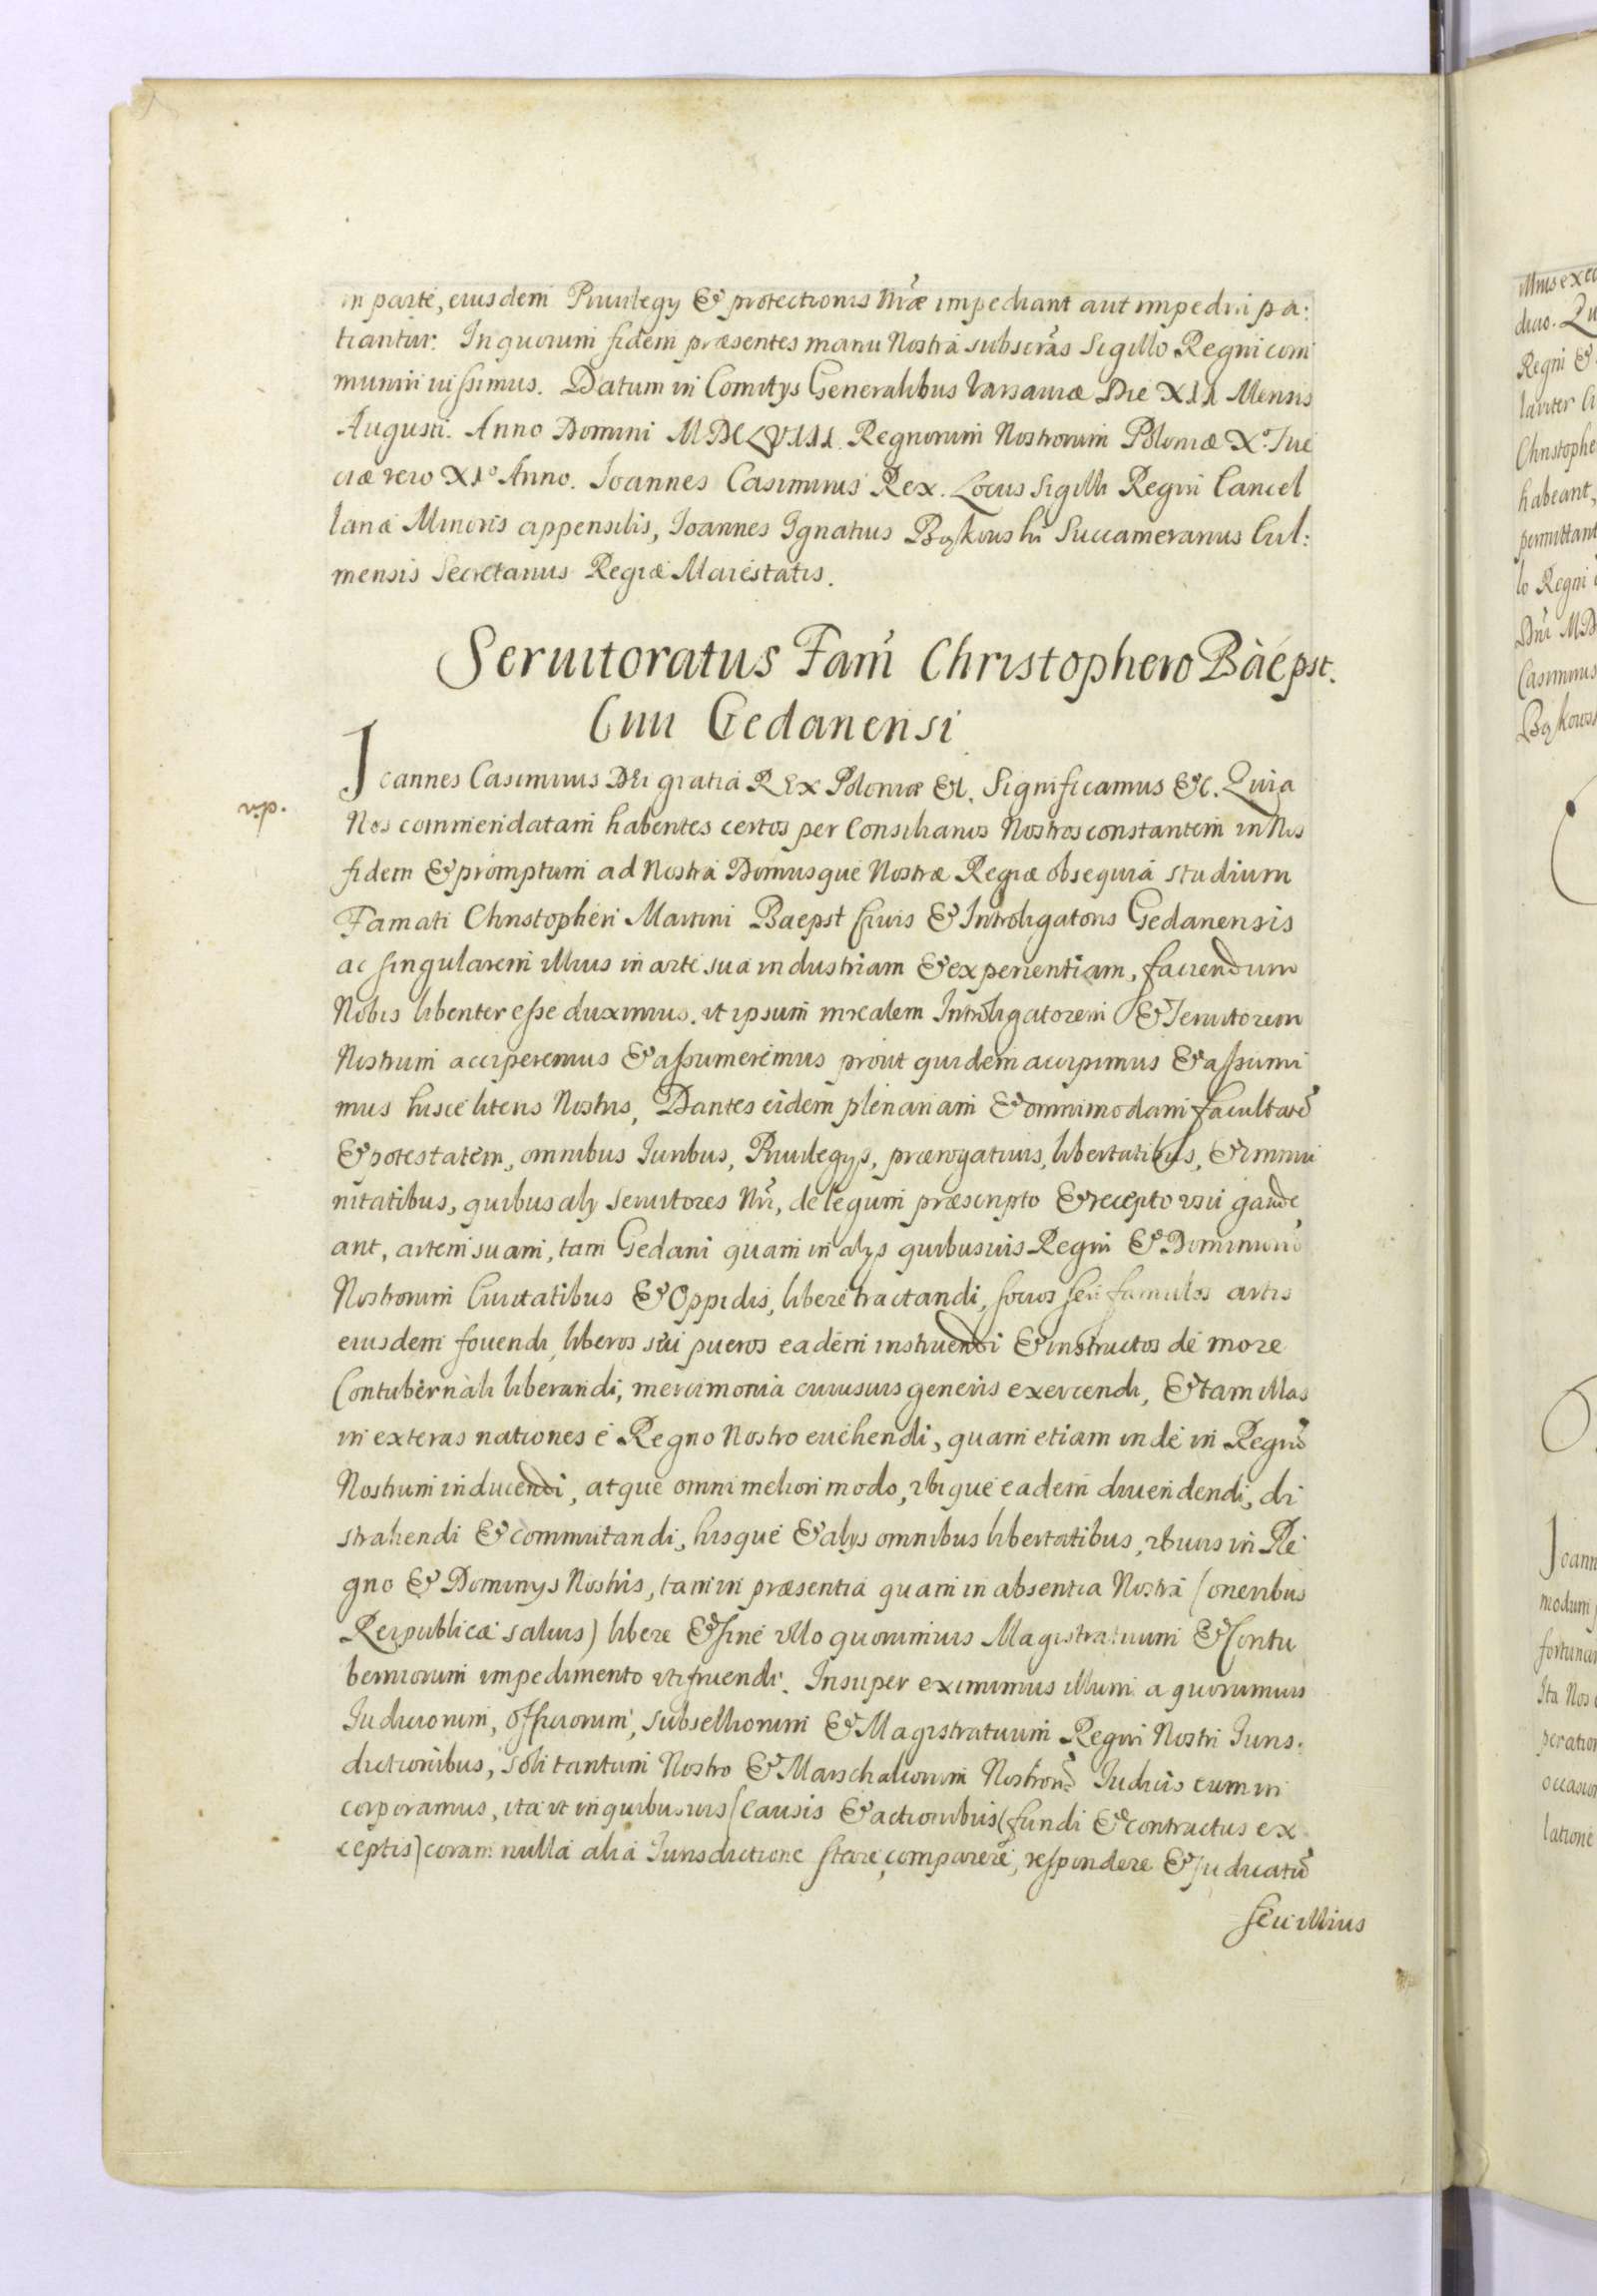 in parte, eiusdem Priuilegÿ & protectionis Nr̃æ impediant aut impediri pa:
tiantur. In quorum fidem præsentes manu Nostra subscr̃as Sigillo Regni com
muniri iussimus. Datum in Comitÿs Generalibus Varsauiæ Die XII Mensis
Augusti. Anno Domini MDCLVIII. Regnorum Nostrorum Poloniæ X.° Sue
ciæ vero XI° Anno. Joannes Casimirus Rex. Locus Sigilli Regni Cancel
lariæ Minoris appensilis, Joannes Ignatius Bąkowski Succamerarius Cul:
mensis Secretarius Regiæ Maiestatis.
Seruitoratus Fam̃ Christophero Bäepst.
Ciui Gedanensi
Joannes Casimirus Dei gratia Rex Poloniæ &c. Significamus &c. Quia
Nos commendatam habentes certos per Consiliarios Nostros constantem in Nos
fidem & promptum ad Nostra Domusque Nostræ Regiæ obsequia studium
Famati Christopheri Martini Baepst Ciuis & Introligatoris Gedanensis
ac singularem illius in arte sua industriam & experientiam, faciendum
Nobis libenter esse duximus. ut ipsum in realem Introligatorem & Seruitorem
Nostrum acciperemus & assumeremus prout quidem accipimus & assumi
mus hisce literis Nostris, Dantes eidem plenariam & omnimodam facultatē
& potestatem, omnibus Iuribus, Priuilegÿs, prærogatiuis, libertatibus, & immu
nitatibus, quibus alÿ seruitores Nr̃i, de legum præscripto & recepto usu gaude
ant, artem suam, tam Gedani quam in alÿs quibusuis Regni & Dominiorū
Nostrorum Ciuitatibus & Oppidis, libere tractandi, socios seu famulos artis
eiusdem fouendi, liberos sui pueros eadem instruendi & instructos de more
Contubernali liberandi, mercimonia cuiusuis generis exercendi, & tam illas
in exteras nationes é Regno Nostro euehendi, quam etiam inde in Regnū
Nostrum inducendi, atque omni meliori modo, ubique eadem diuendendi, di
strahendi & commutandi, hisque & alÿs omnibus libertatibus, ubiuis in Re
gno & Dominÿs Nostris, tam in præsentia quam in absentia Nostra (oneribus
Reipublicæ saluis) libere & sine ullo quorumuis Magistratuum & Contu
berniorum impedimento uti frui. Insuper eximimus illum a quorumuis
Iudiciorum, Officiorum, subselliorum & Magistratuum Regni Nostri Iuris.
dictionibus, soli tantum Nostro & Marschalcorum Nostrorū Iudiciis eum in
corporamus, ita ut in quibusuis (Causis & actionibus (fundi & contractus ex
ceptis) coram nulla alia Iurisdictione stare, comparere, respondere & Iudicatū
seu illius